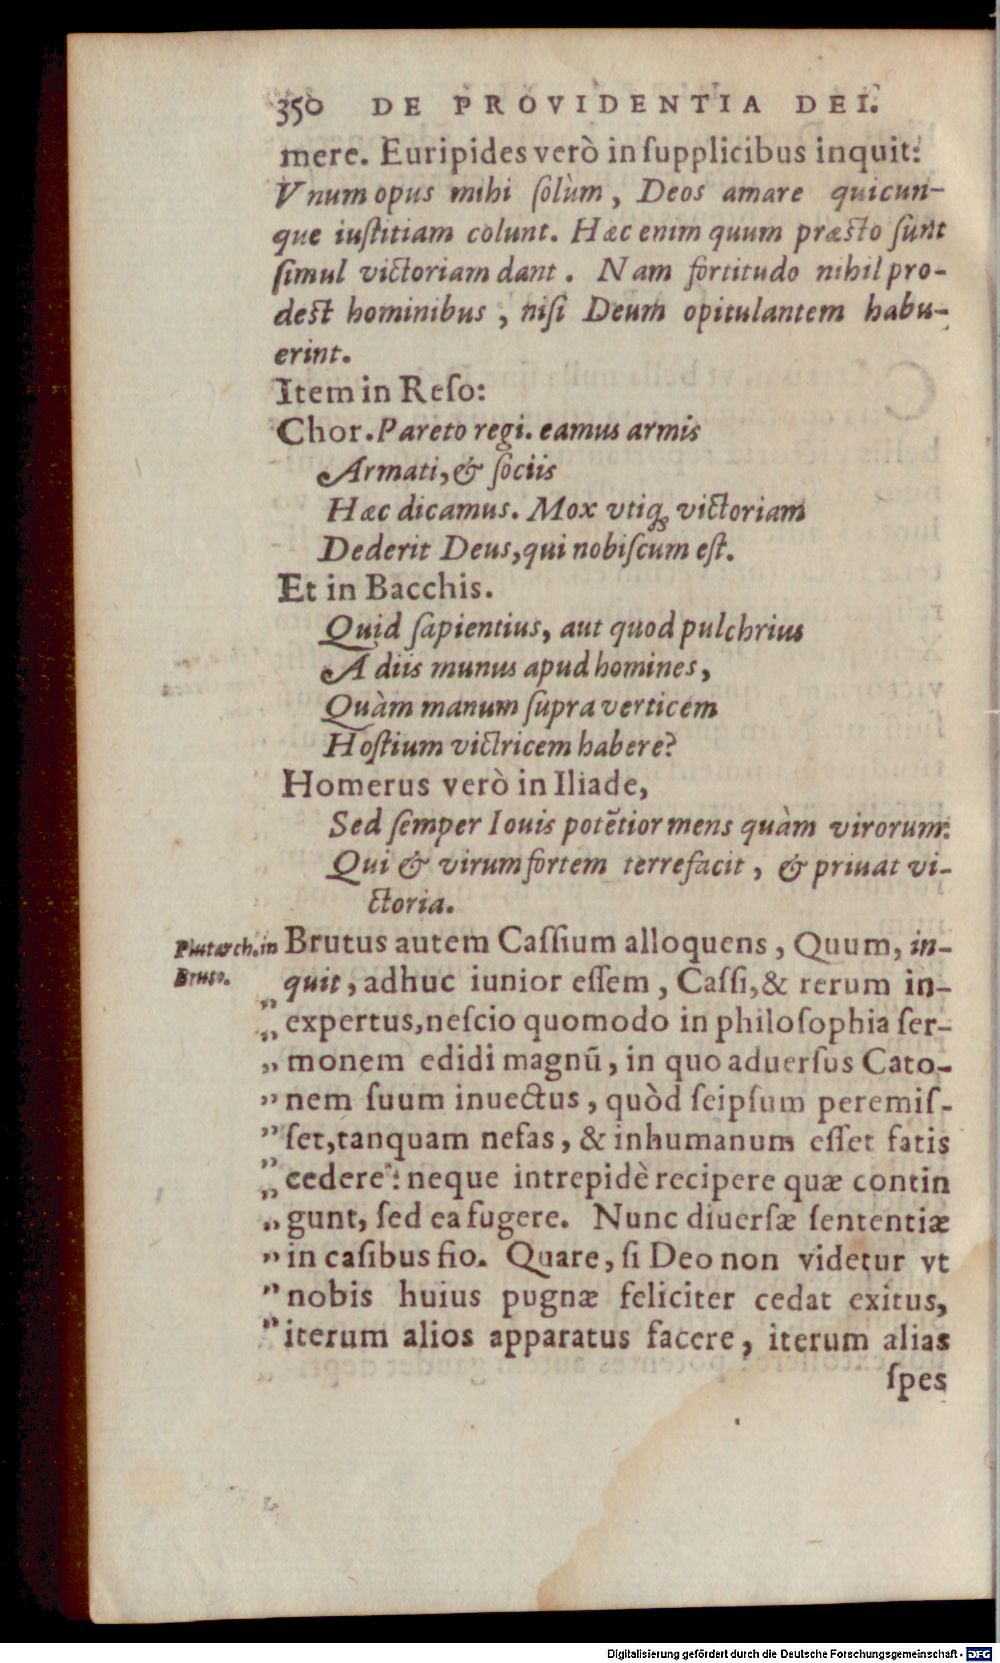 350 DE PROVIDENTIA DEI.
mere. Euripides verò in ſupplicibus inquit:
Vnum opus mihi ſolùm, Deos amare quicun-
que iuſtitiam colunt. Hæc enim quum præſto ſunt
ſimul victoriam dant. Nam fortitudo nihil pro-
deſt hominibus, niſi Deum opitulantem habu-
erint.
Item in Reſo:
Chor. Pareto regi. eamus armis
Armati, & ſociis
Hæc dicamus. Mox vtiq; victoriam
Dederit Deus, qui nobiſcum eſt.
Et in Bacchis.
Quid ſapientius, aut quod pulchrius
A diis munus apud homines,
Quàm manum ſupra verticem
Hoſtium victricem habere?
Homerus verò in Iliade,
Sed ſemper Iouis potẽtior mens quàm virorum:
Qui & virum fortem terrefacit, & priuat vi-
ctoria.
Plutarch. in
Bruto.
Brutus autem Caſſium alloquens, Quum, in-
quit, adhuc iunior eſſem, Caſſi, & rerum in-
„ expertus, neſcio quomodo in philoſophia ſer-
„ monem edidi magnũ, in quo aduerſus Cato-
„ nem ſuum inuectus, quòd ſeipſum peremiſ-
„ ſet, tanquam nefas, & inhumanum eſſet fatis
„ cedere: neque intrepidè recipere quæ contin
„ gunt, ſed ea fugere. Nunc diuerſæ ſententiæ
„ in caſibus fio. Quare, ſi Deo non videtur vt
„ nobis huius pugnæ feliciter cedat exitus,
„ iterum alios apparatus facere, iterum alias
ſpes
Digitalisierung gefördert durch die Deutsche Forschungsgemeinschaft - DFG